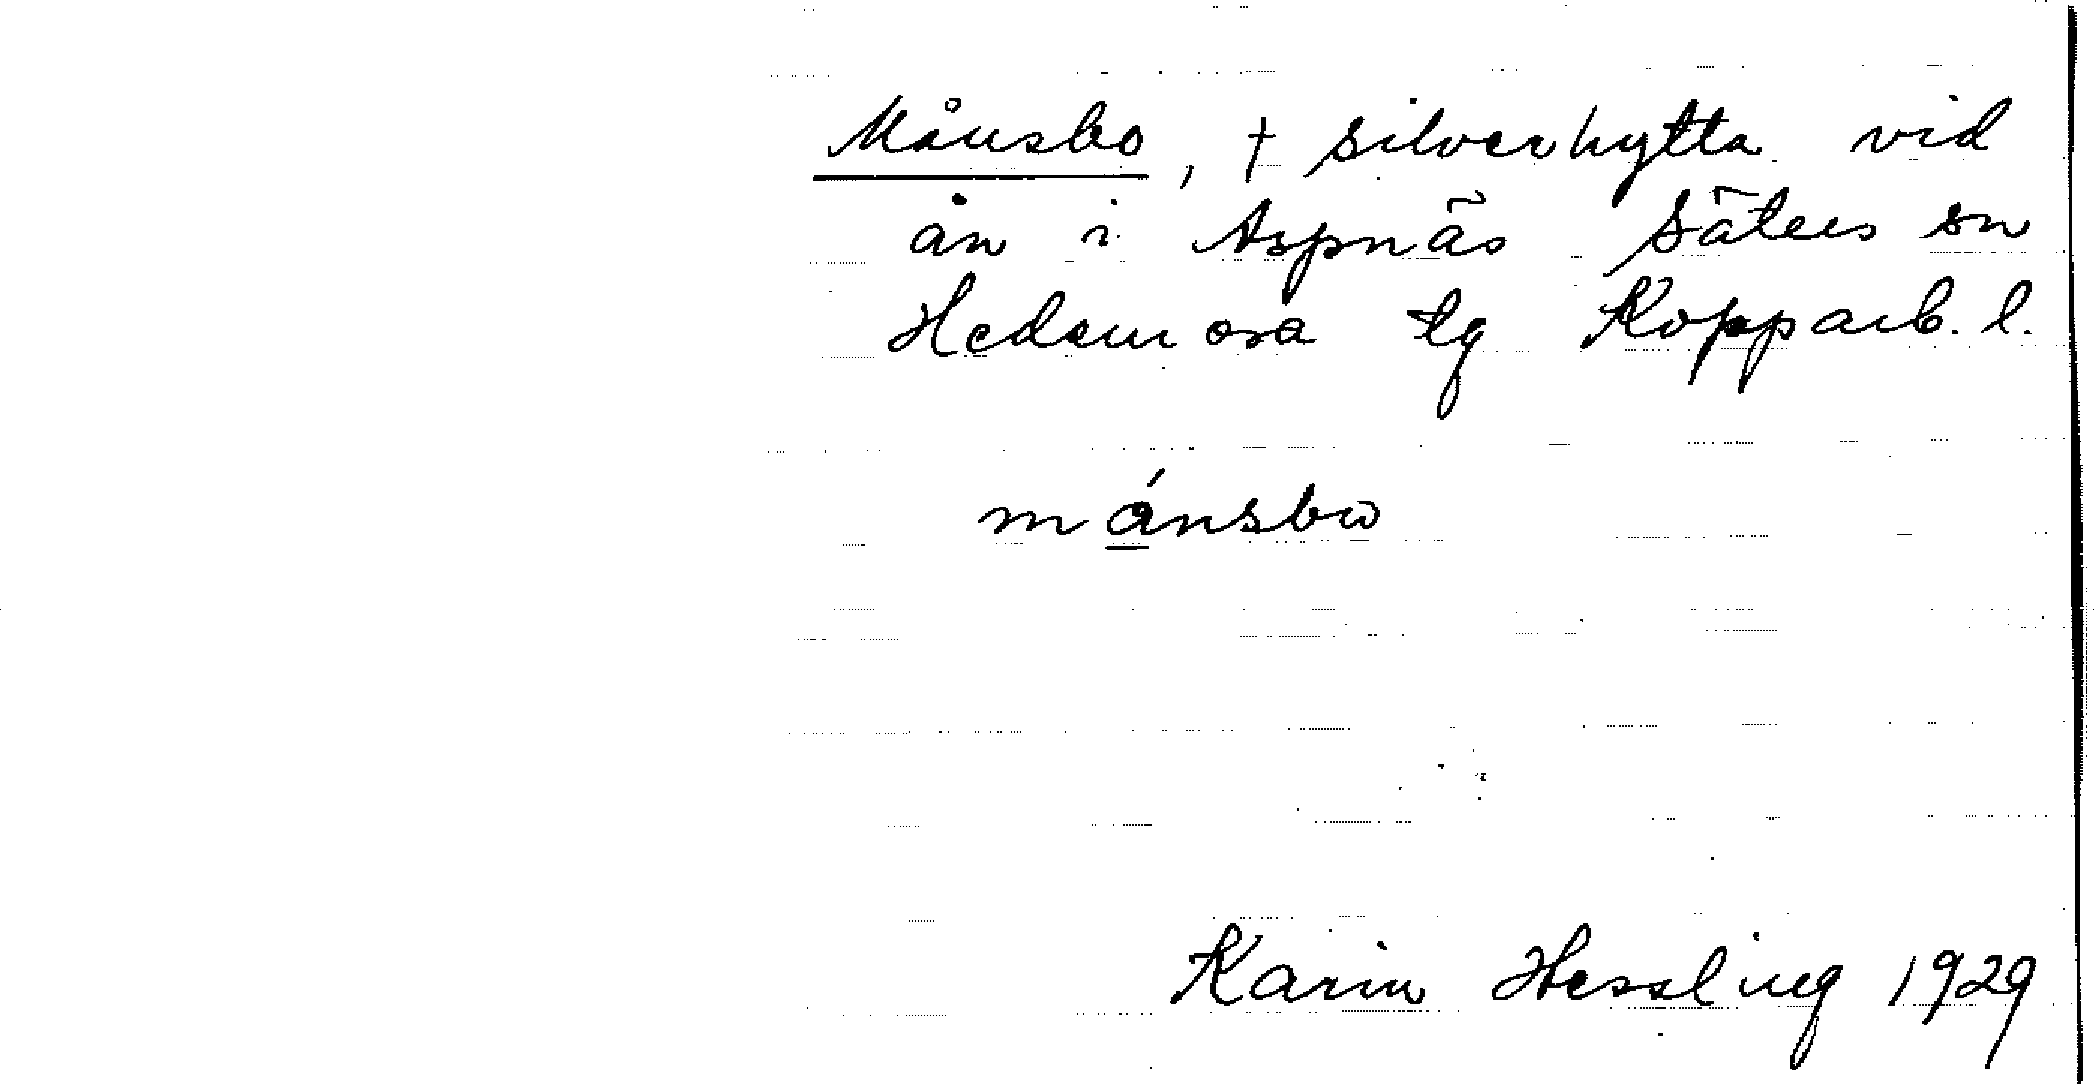 Månsbo, † silverhytta vid
ån i Aspnäs Säters sn
Hedemora tg Kopparb. l.
mánsbω
Karin Hessling 1929